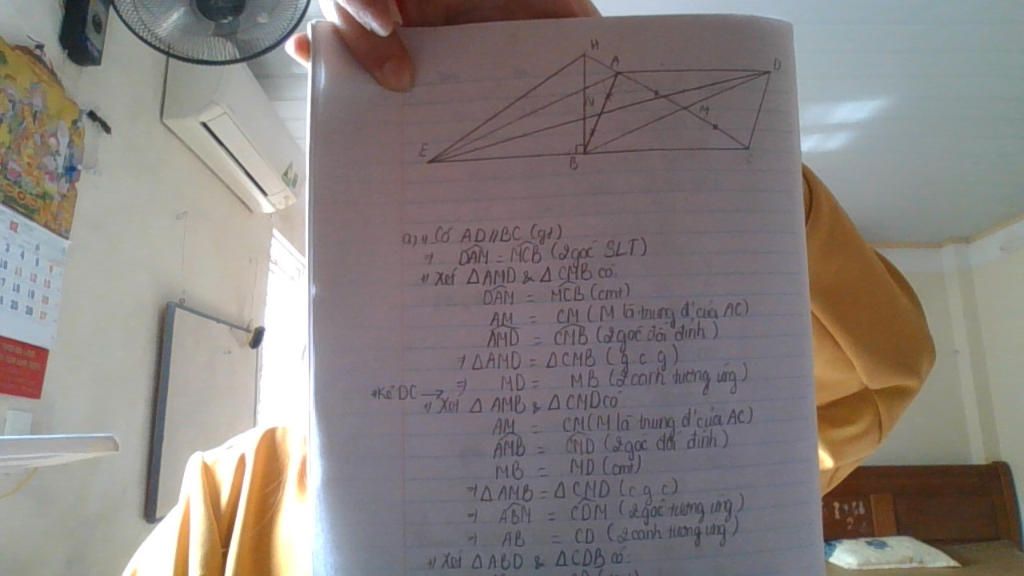 H
A
D
N
M
E
B
C
a) " Có AD // BC (gt)
⇒ DAM = MCB (2 góc SLT)
" Xét △AMD & △CMB có:
DAM = MCB (cmt)
AM = CM (M là trung đ' của AC)
AMD = CMB (2 góc đối đỉnh)
⇒ △AMD = △CMB (g.c.g)
⇒ MD = MB (2 cạnh tương ứng)
*Kẻ DC →
" Xét △AMB & △CMD có
AM = CM (M là trung đ' của AC)
AMB = CMD (2 góc đối đỉnh)
MB = MD (cmt)
⇒ △AMB = △CMD (c.g.c)
⇒ ABM = CDM (2 góc tương ứng)
⇒ AB = CD (2 cạnh tương ứng)
" Xét △ABD & △CDB có: